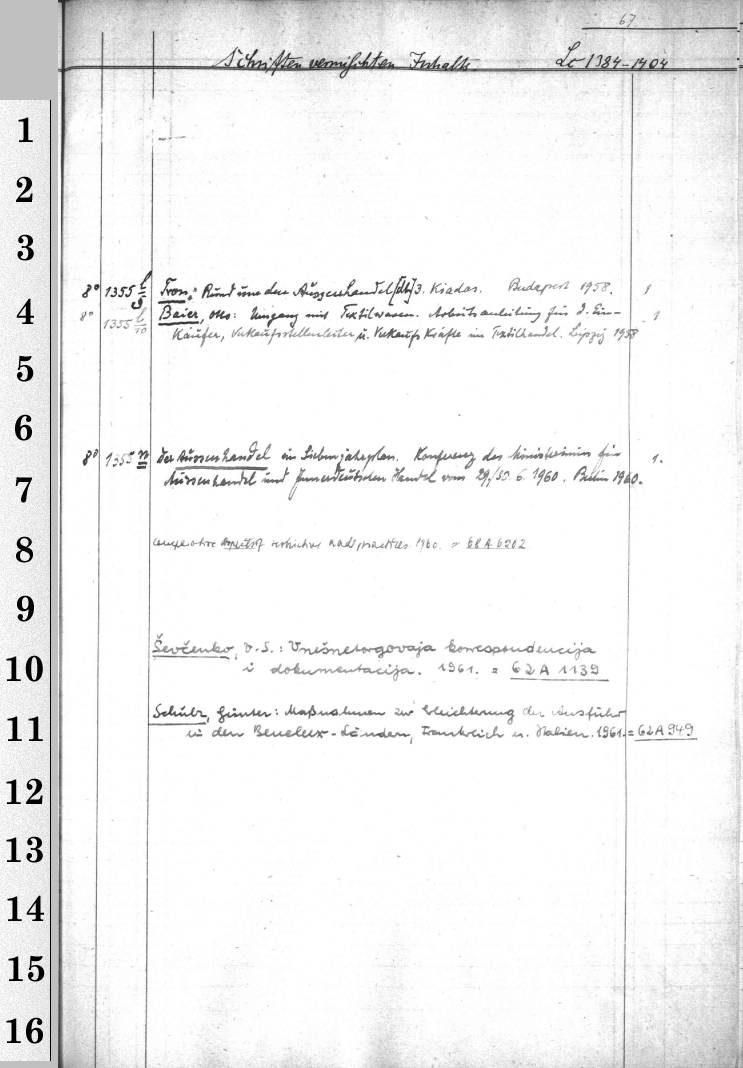 67
Schriften vermischten Inhalts Lc 1384-1404
1
2
3
8° 1355 l/9 Tron,: Rund um den Aussenhandel [dt.] 3. Kiadas. Budapest 1958. 1
4
8° 1355 l/10 Baier, Otto: Umgang mit Textilwaren. Arbeitsanleitung für d. Ein-
käufer, Verkaufsstellenleiter u. Verkaufskräfte im Textilhandel. Leipzig 1958
1
5
6
8° 1355 m Der Aussenhandel im Siebenjahrplan. Konferenz des Ministeriums für 1.
Aussenhandel und Innerdeutschen Handel vom 29./30. 6. 1960. Berlin 1960.
7
8
restrictive 1960. = 68 A 6202
9
Ševčenko, : Vnešnetorgovaja korrespondencija
10
i dokumentacija. 1961. = 62 A 1139
Schulz, Günter: Maßnahmen zur Erleichterung der Ausfuhr
11
in den Benelux-Ländern, Frankreich u. Italien. 1961. = 62 A 949
12
13
14
15
16